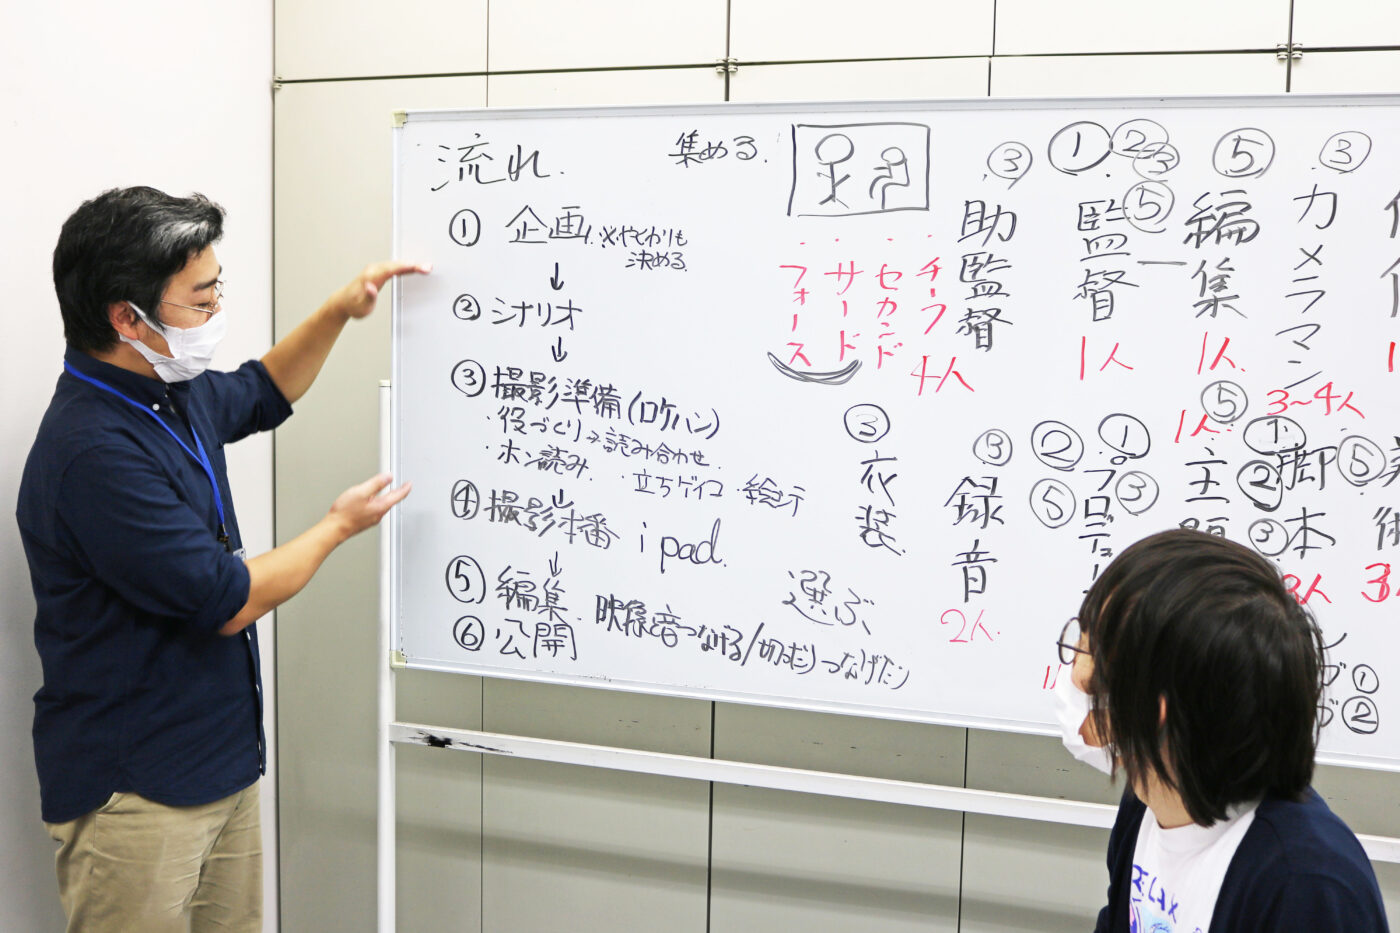 流れ.
集める.
① 企画 ※やくわりも
決める
↓
② シナリオ
↓
③ 撮影準備(ロケハン)
・役づくり→読み合わせ.
・ホン読み.
・立ちゲイコ
↓
④ 撮影本番 ipad.
↓
⑤ 編集. 映像と音つなげる/切ったりつなげたり
⑥ 公開
選ぶ
・チーフ
・セカンド
・サード
・フォース
4人
③
助監督
① ② ③ ⑤
監督
1人
⑤
編集
1人.
③
カメラマン
3~4人
③
衣装.
③
録音
2人.
① ② ③ ⑤
プロデュ
⑤
1人.
主題
① ② ③
脚本
3人
⑤
①
②
RELAX